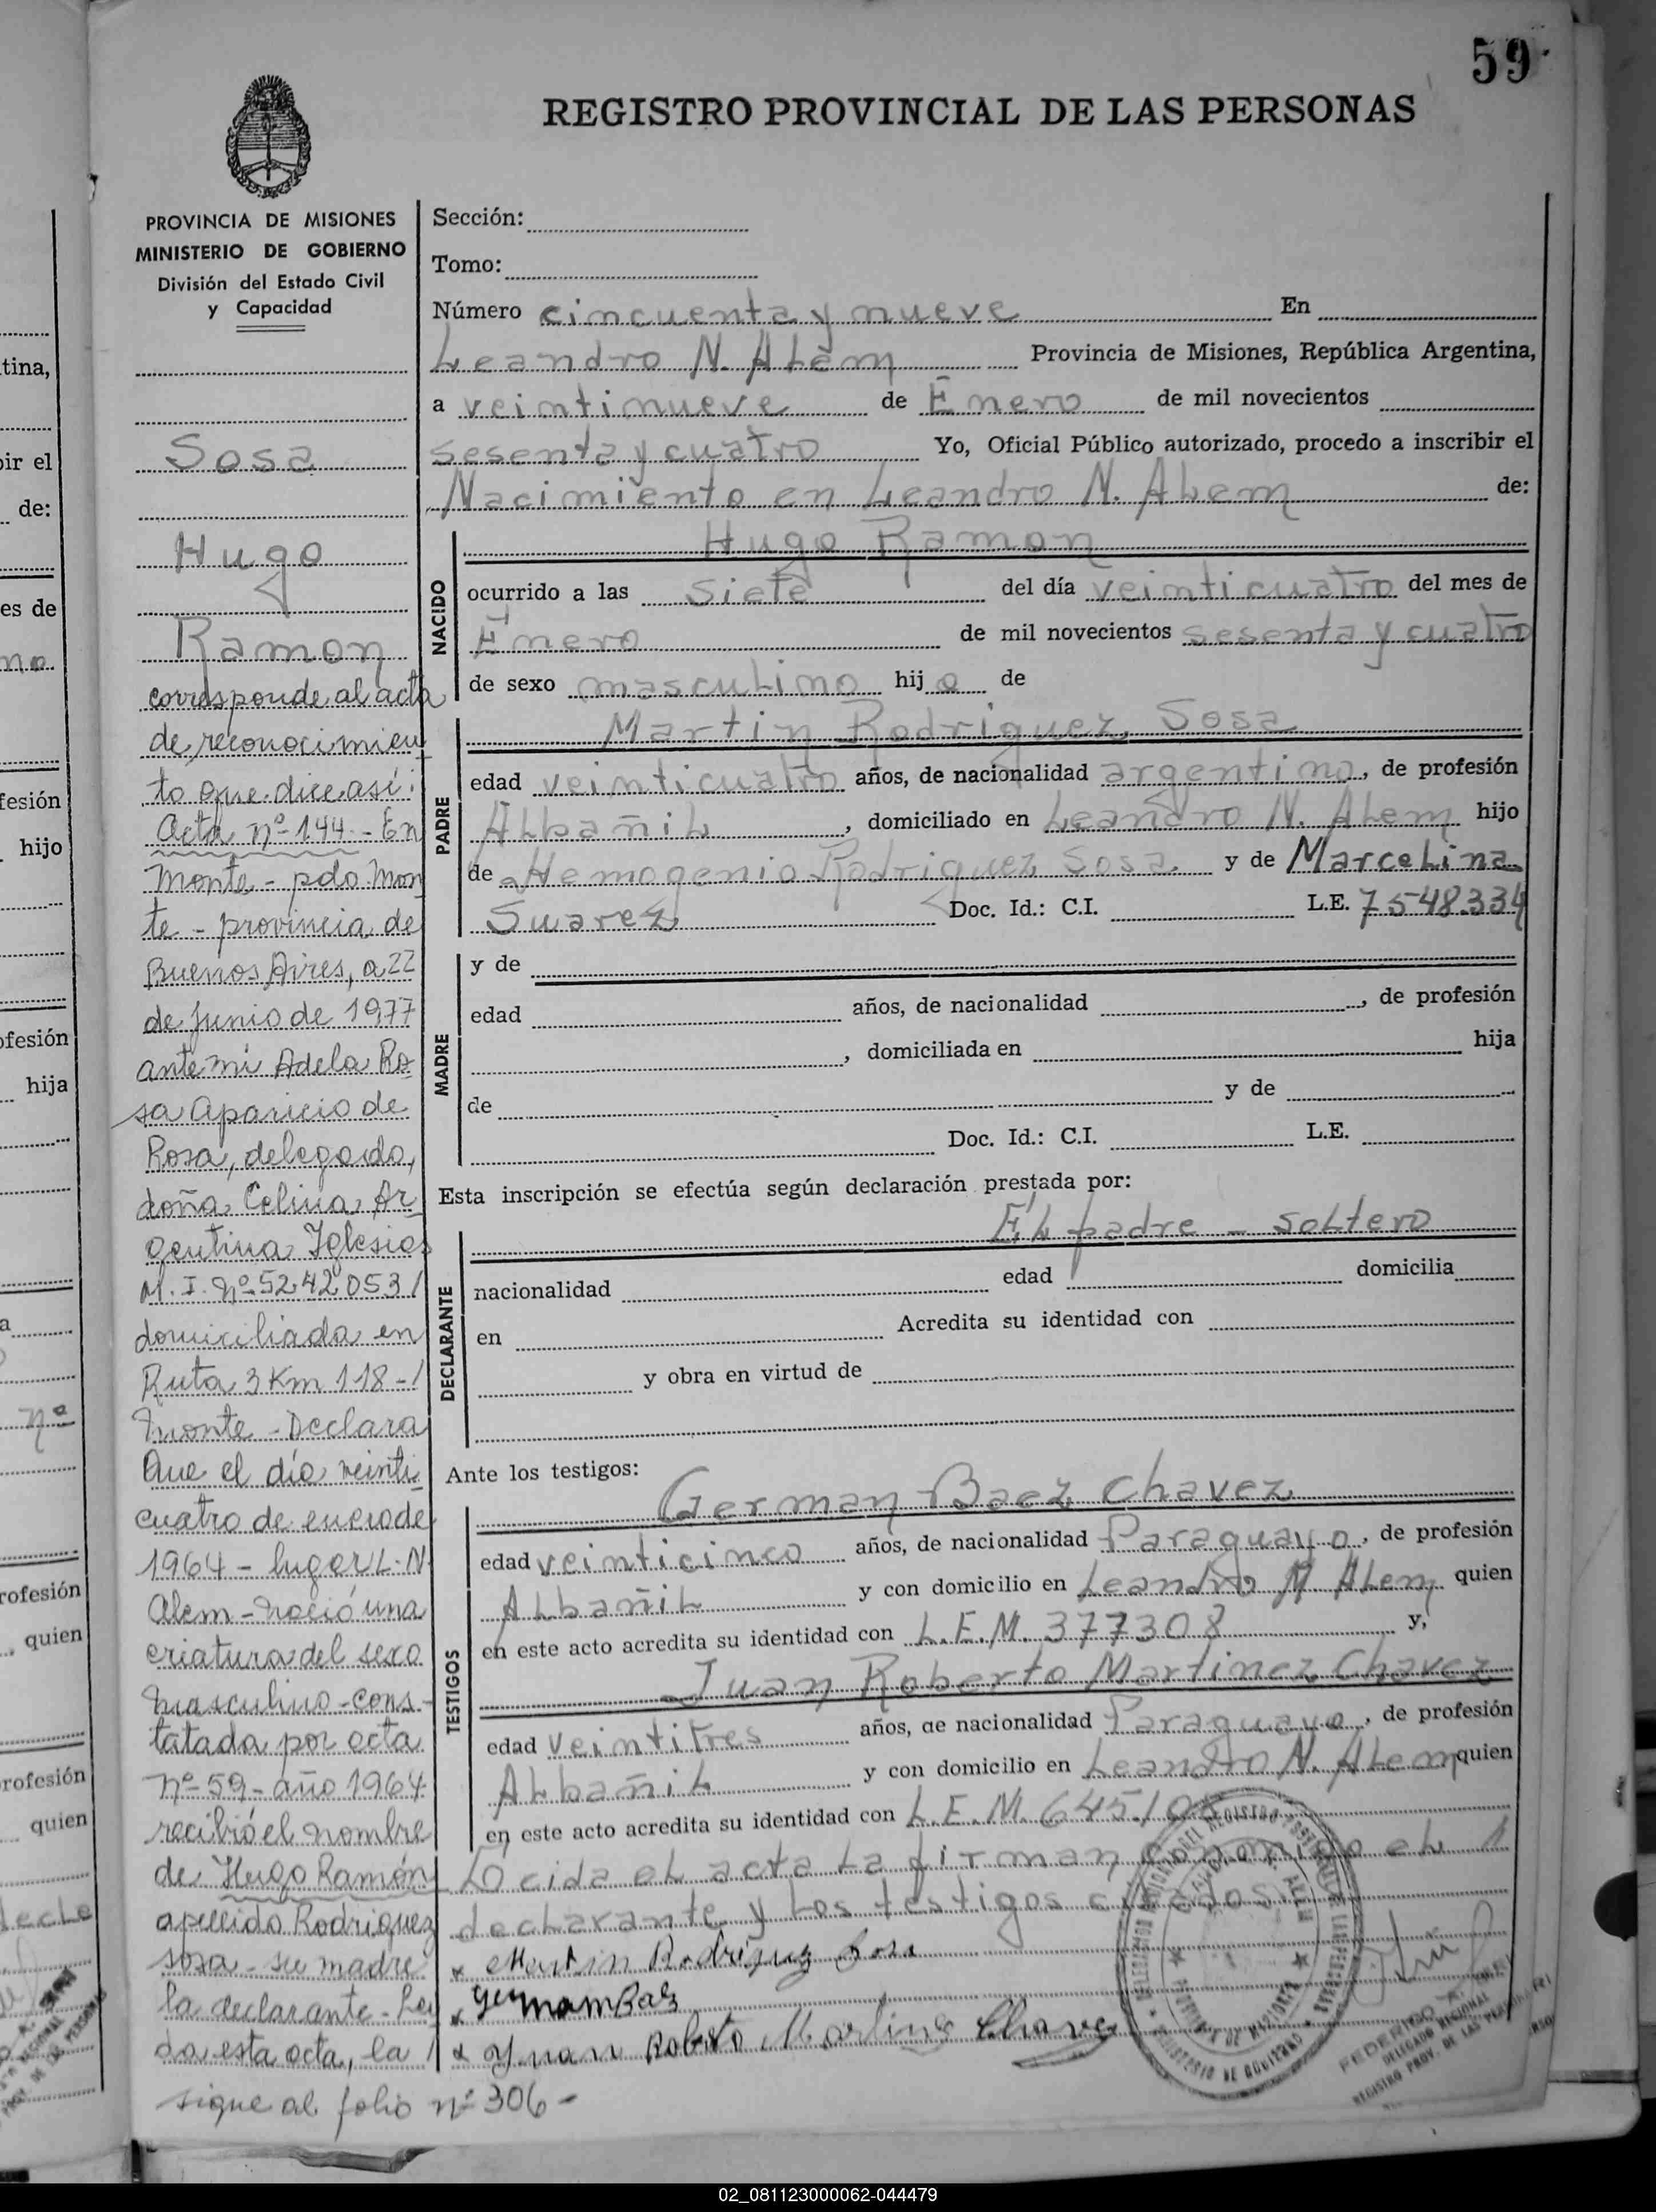 59
REGISTRO PROVINCIAL DE LAS PERSONAS
PROVINCIA DE MISIONES
MINISTERIO DE GOBIERNO
División del Estado Civil
y Capacidad
Sosa
Hugo
Ramon
corresponde al acta
de reconocimien
to que dice así:
Acta nº 144 - En
Monte - pdo. Mon
te - provincia de
Buenos Aires, a 22
de Junio de 1977
ante mi Adela Ro-
sa Aparicio de
Rosa, delegado,
doña Celina Ar-
gentina Iglesias
M. I. Nº 5242053/
domiciliada en
Ruta 3 Km 118-/
Monte - Declara
Que el día veinti-
cuatro de enero de
1964 - lugar L. N.
Alem - nació una
criatura del sexo
masculino - cons-
tatada por acta
nº 59 - año 1964
recibió el nombre
de Hugo Ramón
apellido Rodriguez
sosa - su madre
la declarante - Leí
da esta acta, la /
sigue al folio nº 306 -
Sección:
Tomo:
Número cincuenta y nueve En
Leandro N. Alem Provincia de Misiones, República Argentina,
a veintinueve de Enero de mil novecientos
sesenta y cuatro Yo, Oficial Público autorizado, procedo a inscribir el
Nacimiento en Leandro N. Alem de:
NACIDO
Hugo Ramon
ocurrido a las siete del día veinticuatro del mes de
Enero de mil novecientos sesenta y cuatro
de sexo masculino hijo de
PADRE
Martin Rodriguez Sosa
edad veinticuatro años, de nacionalidad argentino, de profesión
Albañil, domiciliado en Leandro N. Alem hijo
de Hemogenio Rodriguez Sosa y de Marcelina
Suarez Doc. Id.: C.I. L.E. 7548.334
MADRE
y de
edad años, de nacionalidad , de profesión
, domiciliada en hija
de y de
Doc. Id.: C.I. L.E.
Esta inscripción se efectúa según declaración prestada por:
DECLARANTE
El padre - soltero
nacionalidad edad domicilia
en Acredita su identidad con
y obra en virtud de
Ante los testigos:
TESTIGOS
German Baez Chavez
edad veinticinco años, de nacionalidad Paraguayo, de profesión
Albañil y con domicilio en Leandro N Alem quien
en este acto acredita su identidad con L.E.M. 377308 y,
Juan Roberto Martinez Chavez
edad veintitres años, de nacionalidad Paraguayo, de profesión
Albañil y con domicilio en Leandro N. Alem quien
en este acto acredita su identidad con L.E.M. 645.10
Locida el acta la firman conmigo el /
declarante y los testigos citados
x Martin Rodriguez Sosa
x German Baez
x Juan Roberto Martinez Chavez
02_081123000062-044479